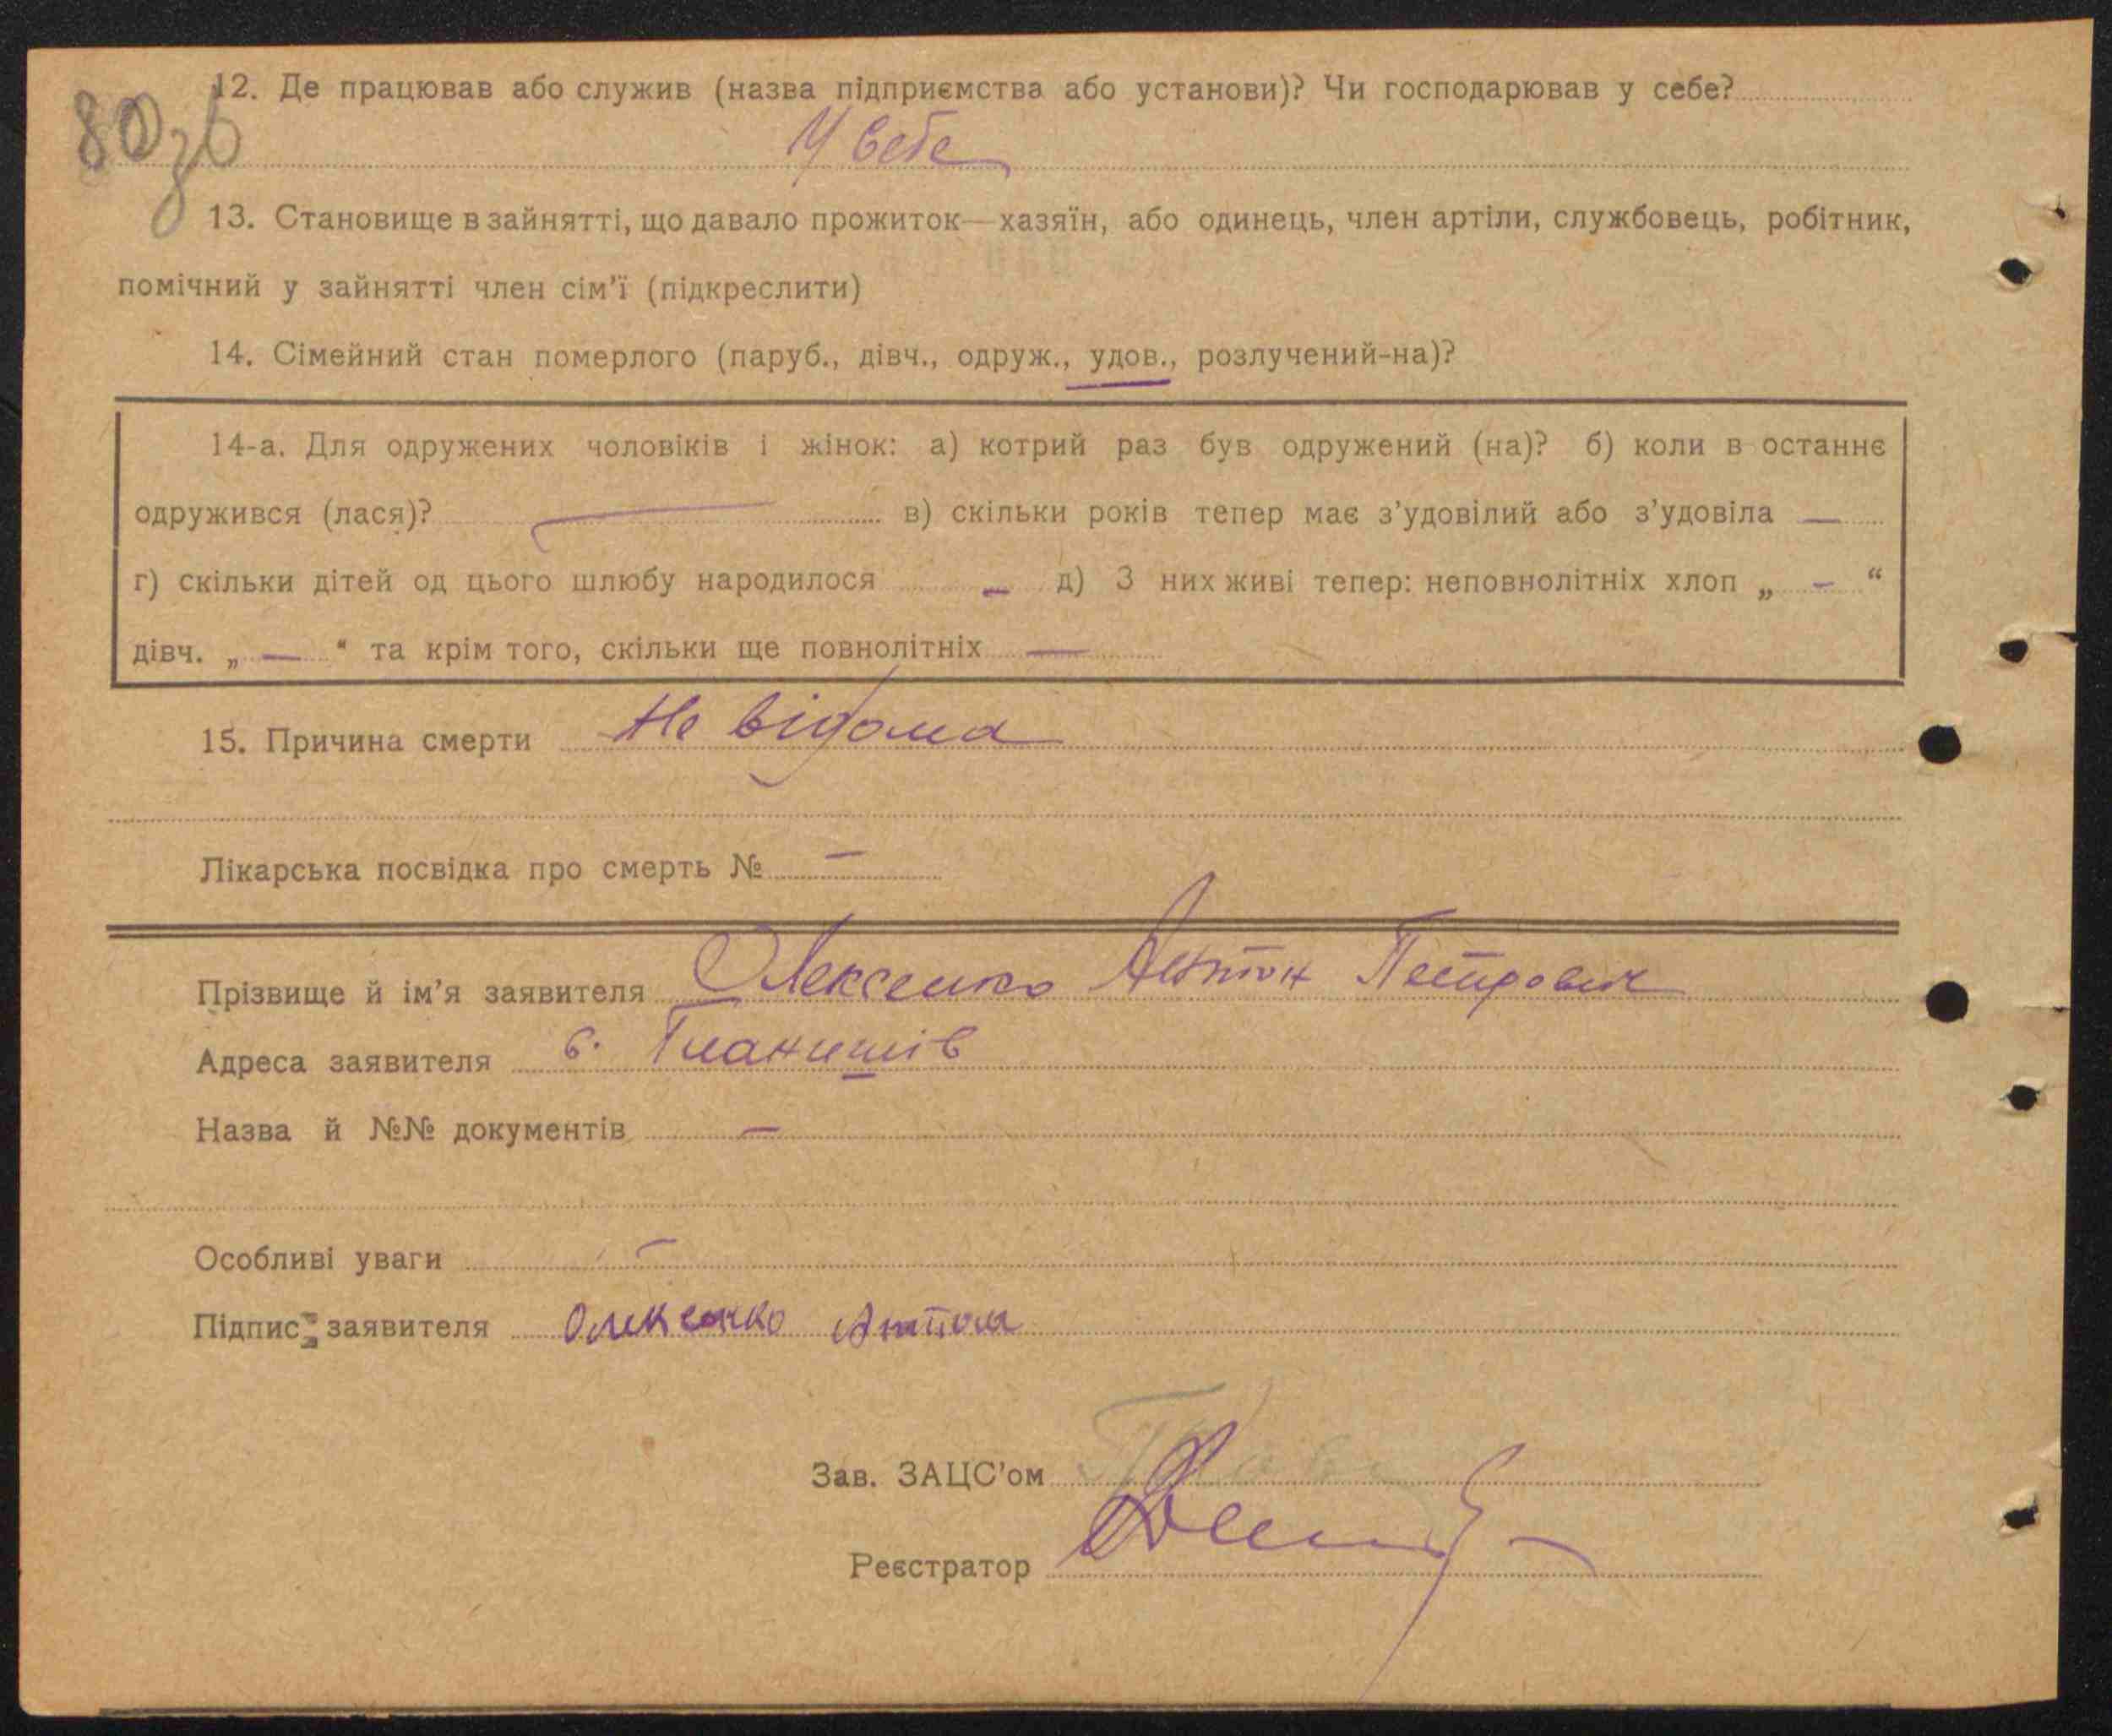 80зв
12. Де працював або служив (назва підприємства або установи)? Чи господарював у себе?
У себе
13. Становище в зайнятті, що давало прожиток — хазяїн, або одинець, член артіли, службовець, робітник,
помічний у зайнятті член сім'ї (підкреслити)
14. Сімейний стан померлого (паруб., дівч., одруж., удов., розлучений-на)?
14-а. Для одружених чоловіків і жінок: а) котрий раз був одружений (на)? б) коли в останнє
одружився (лася)? — в) скільки років тепер має з'удовілий або з'удовіла —
г) скільки дітей од цього шлюбу народилося — д) З них живі тепер: неповнолітніх хлоп „ — “
дівч. „ — “ та крім того, скільки ще повнолітніх —
15. Причина смерти Не відома
Лікарська посвідка про смерть № —
Прізвище й ім'я заявителя Олексенко Антон Петрович
Адреса заявителя с. Гланишів
Назва й №№ документів —
Особливі уваги —
Підпис заявителя Олексенко Антон
Зав. ЗАЦС'ом
Реєстратор